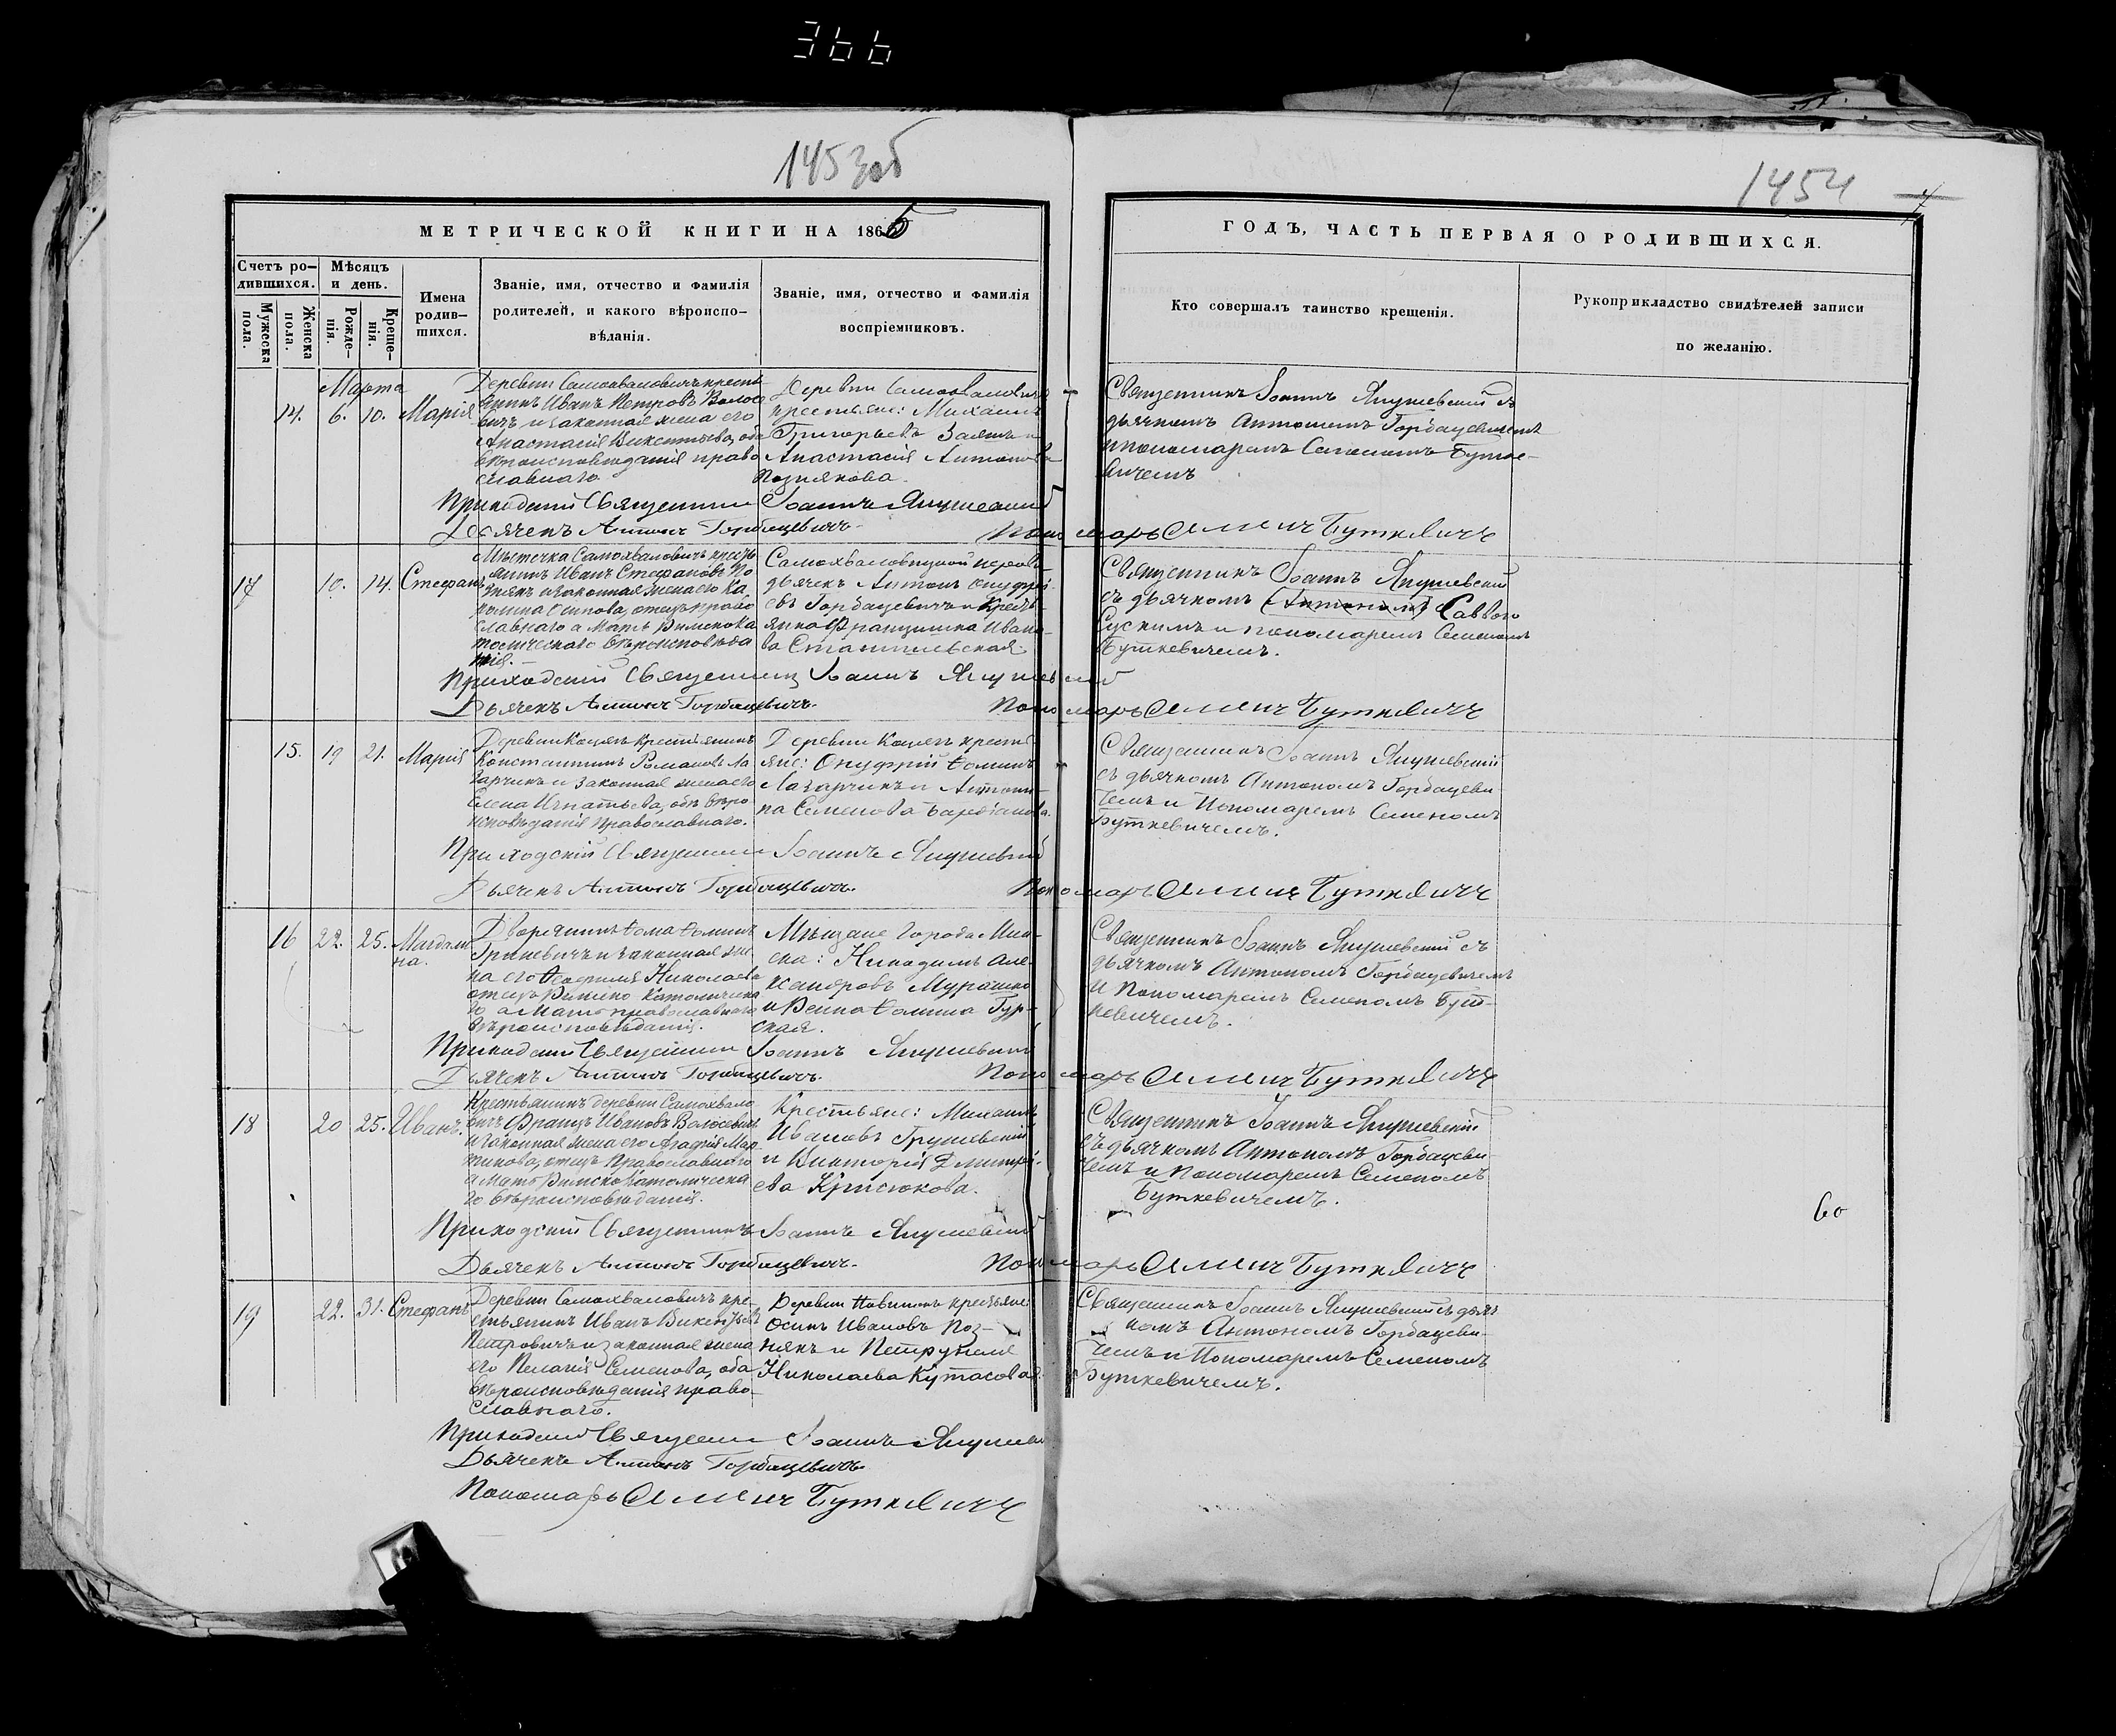 366
1453об
1454
7
МЕТРИЧЕСКОЙ КНИГИ НА 1865
ГОДЪ, ЧАСТЬ ПЕРВАЯ О РОДИВШИХСЯ.
Счетъ ро-
дившихся.
Мужеска
пола.
Женска
пола.
Мѣсяцъ
и день.
Рожде-
нія.
Креще-
нія.
Имена
родив-
шихся.
Званіе, имя, отчество и фамилія
родителей, и какого вѣроиспо-
вѣданія.
Званіе, имя, отчество и фамилія
воспріемниковъ.
Кто совершалъ таинство крещенія.
Рукоприкладство свидѣтелей записи
по желанію.
Марта
14. 6. 10. Марія
Деревни Самохваловичъ кресть
янинъ Иванъ Петровъ Волосе
вичъ и законная жена его
Анастасія Викентьева, оба
вѣроисповѣданія право
славнаго
Деревни Самохваловичъ
крестьяне: Михаилъ
Григорьевъ Заяцъ и
Анастасія Антонова
Познякова.
Священникъ Іоаннъ Янушевскій съ
дьячкомъ Антономъ Горбацевичемъ
и пономаремъ Семеномъ Бутке-
вичемъ
Приходскій Священникъ Іоаннъ Янушевскій
Дьячекъ Антонъ Горбацевичъ.
Пономарь Семенъ Буткевичъ
17 10. 14. Стефанъ
Мѣстечка Самохваловичъ кресть
янинъ Иванъ Стефановъ По
знякъ и законная жена его Ка
ролина Осипова, отецъ право
славнаго а мать Римско Ка
толическаго вѣроисповѣда
нія.
Самохваловицкой церкви
дьячекъ Антонъ Онуфрі
евъ Горбацевичъ и Кресть
янка Францишка Ивано-
ва Станишевская.
Священникъ Іоаннъ Янушевскій
съ дьячкомъ (Антономъ) Саввою
Сускимъ и пономаремъ Семеномъ
Буткевичемъ.
Приходскій Священникъ Іоаннъ Янушевскій
Дьячекъ Антонъ Горбацевичъ.
Пономарь Семенъ Буткевичъ
15. 19 21. Марія
Деревни Коцякъ Крестьянинъ
Константинъ Романовъ Ла
зарчикъ и законная жена его
Елена Игнатьева, объ вѣро
исповѣданія православнаго.
Деревни Коцякъ кресть
яне: Онуфрій Ѳоминъ
Лазарчикъ и Антони-
на Семенова
Священникъ Іоаннъ Янушевскій
съ дьячкомъ Антономъ Горбацеви
чемъ и Пономаремъ Семеномъ
Буткевичемъ.
Приходскій Священникъ Іоаннъ Янушевскій
Дьячекъ Антонъ Горбацевичъ.
Пономарь Семенъ Буткевичъ
16 22. 25. Магдали
на.
Дворянинъ Ѳома Ѳоминъ
Гриневичъ и законная же
на его Ѳеофилія Николаева
отецъ Римско Католическа
го а Мать православнаго
вѣроисповѣданія.
Мѣщане города Мин-
ска: Никодимъ Але-
ксандровъ Мурашко
и Ѳомина Гур-
ская.
Священникъ Іоаннъ Янушевскій съ
дьячкомъ Антономъ Горбацевичемъ
и Пономаремъ Семеномъ Бут-
кевичемъ.
Приходскій Священникъ Іоаннъ Янушевскій
Дьячекъ Антонъ Горбацевичъ.
Пономарь Семенъ Буткевичъ
18 20 25. Иванъ.
Крестьянинъ деревни Самохвало
вичъ Францъ Ивановъ Волосевичъ
и законная жена его Агафія Мар
тинова, отецъ Православнаго
а Мать Римско Католическа
го вѣроисповѣданія.
Крестьяне: Михаилъ
Ивановъ Грушевскій
и Викторія Дмитрі-
ева Крисюкова.
Священникъ Іоаннъ Янушевскій
съ дьячкомъ Антономъ Горбацеви
чемъ и Пономаремъ Семеномъ
Буткевичемъ.
60
Приходскій Священникъ Іоаннъ Янушевскій
Дьячекъ Антонъ Горбацевичъ.
Пономарь Семенъ Буткевичъ
19 22. 31. Стефанъ
Деревни Самохваловичъ кре-
стьянинъ Иванъ Викентьевъ
Петровичъ и законная жена
его Пелагія Семенова, оба
вѣроисповѣданія право-
славнаго.
Деревни крестьяне:
Осипъ Ивановъ Поз-
някъ и Петрунеля
Николаева Кутасова.
Священникъ Іоаннъ Янушевскій съ дьяч
комъ Антономъ Горбацеви-
чемъ и Пономаремъ Семеномъ
Буткевичемъ.
Приходскій Священникъ Іоаннъ Янушевскій
Дьячекъ Антонъ Горбацевичъ
Пономарь Семенъ Буткевичъ